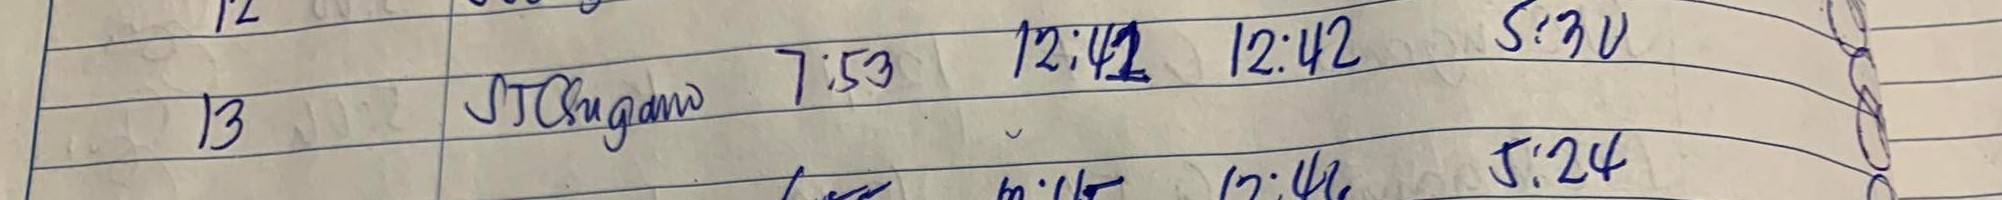 12
13 STCSugano 7:53 12:41 12:42 5:30
12:46 5:24